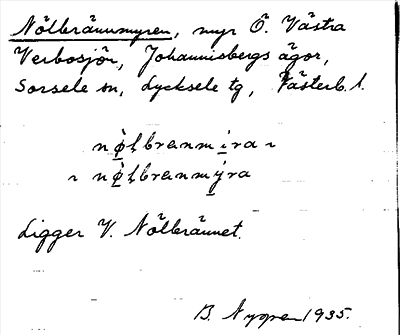 Nölbrännmyren, myr Ö. Västra
Verbosjön, Johannisbergs ägor,
Sorsele sn, Lycksele tg, Västerb. l.
nø̀ḷbranmira ~
~ nø̀ḷbranmýra
Ligger V. Nölbrännet.
B. Nygren 1935.